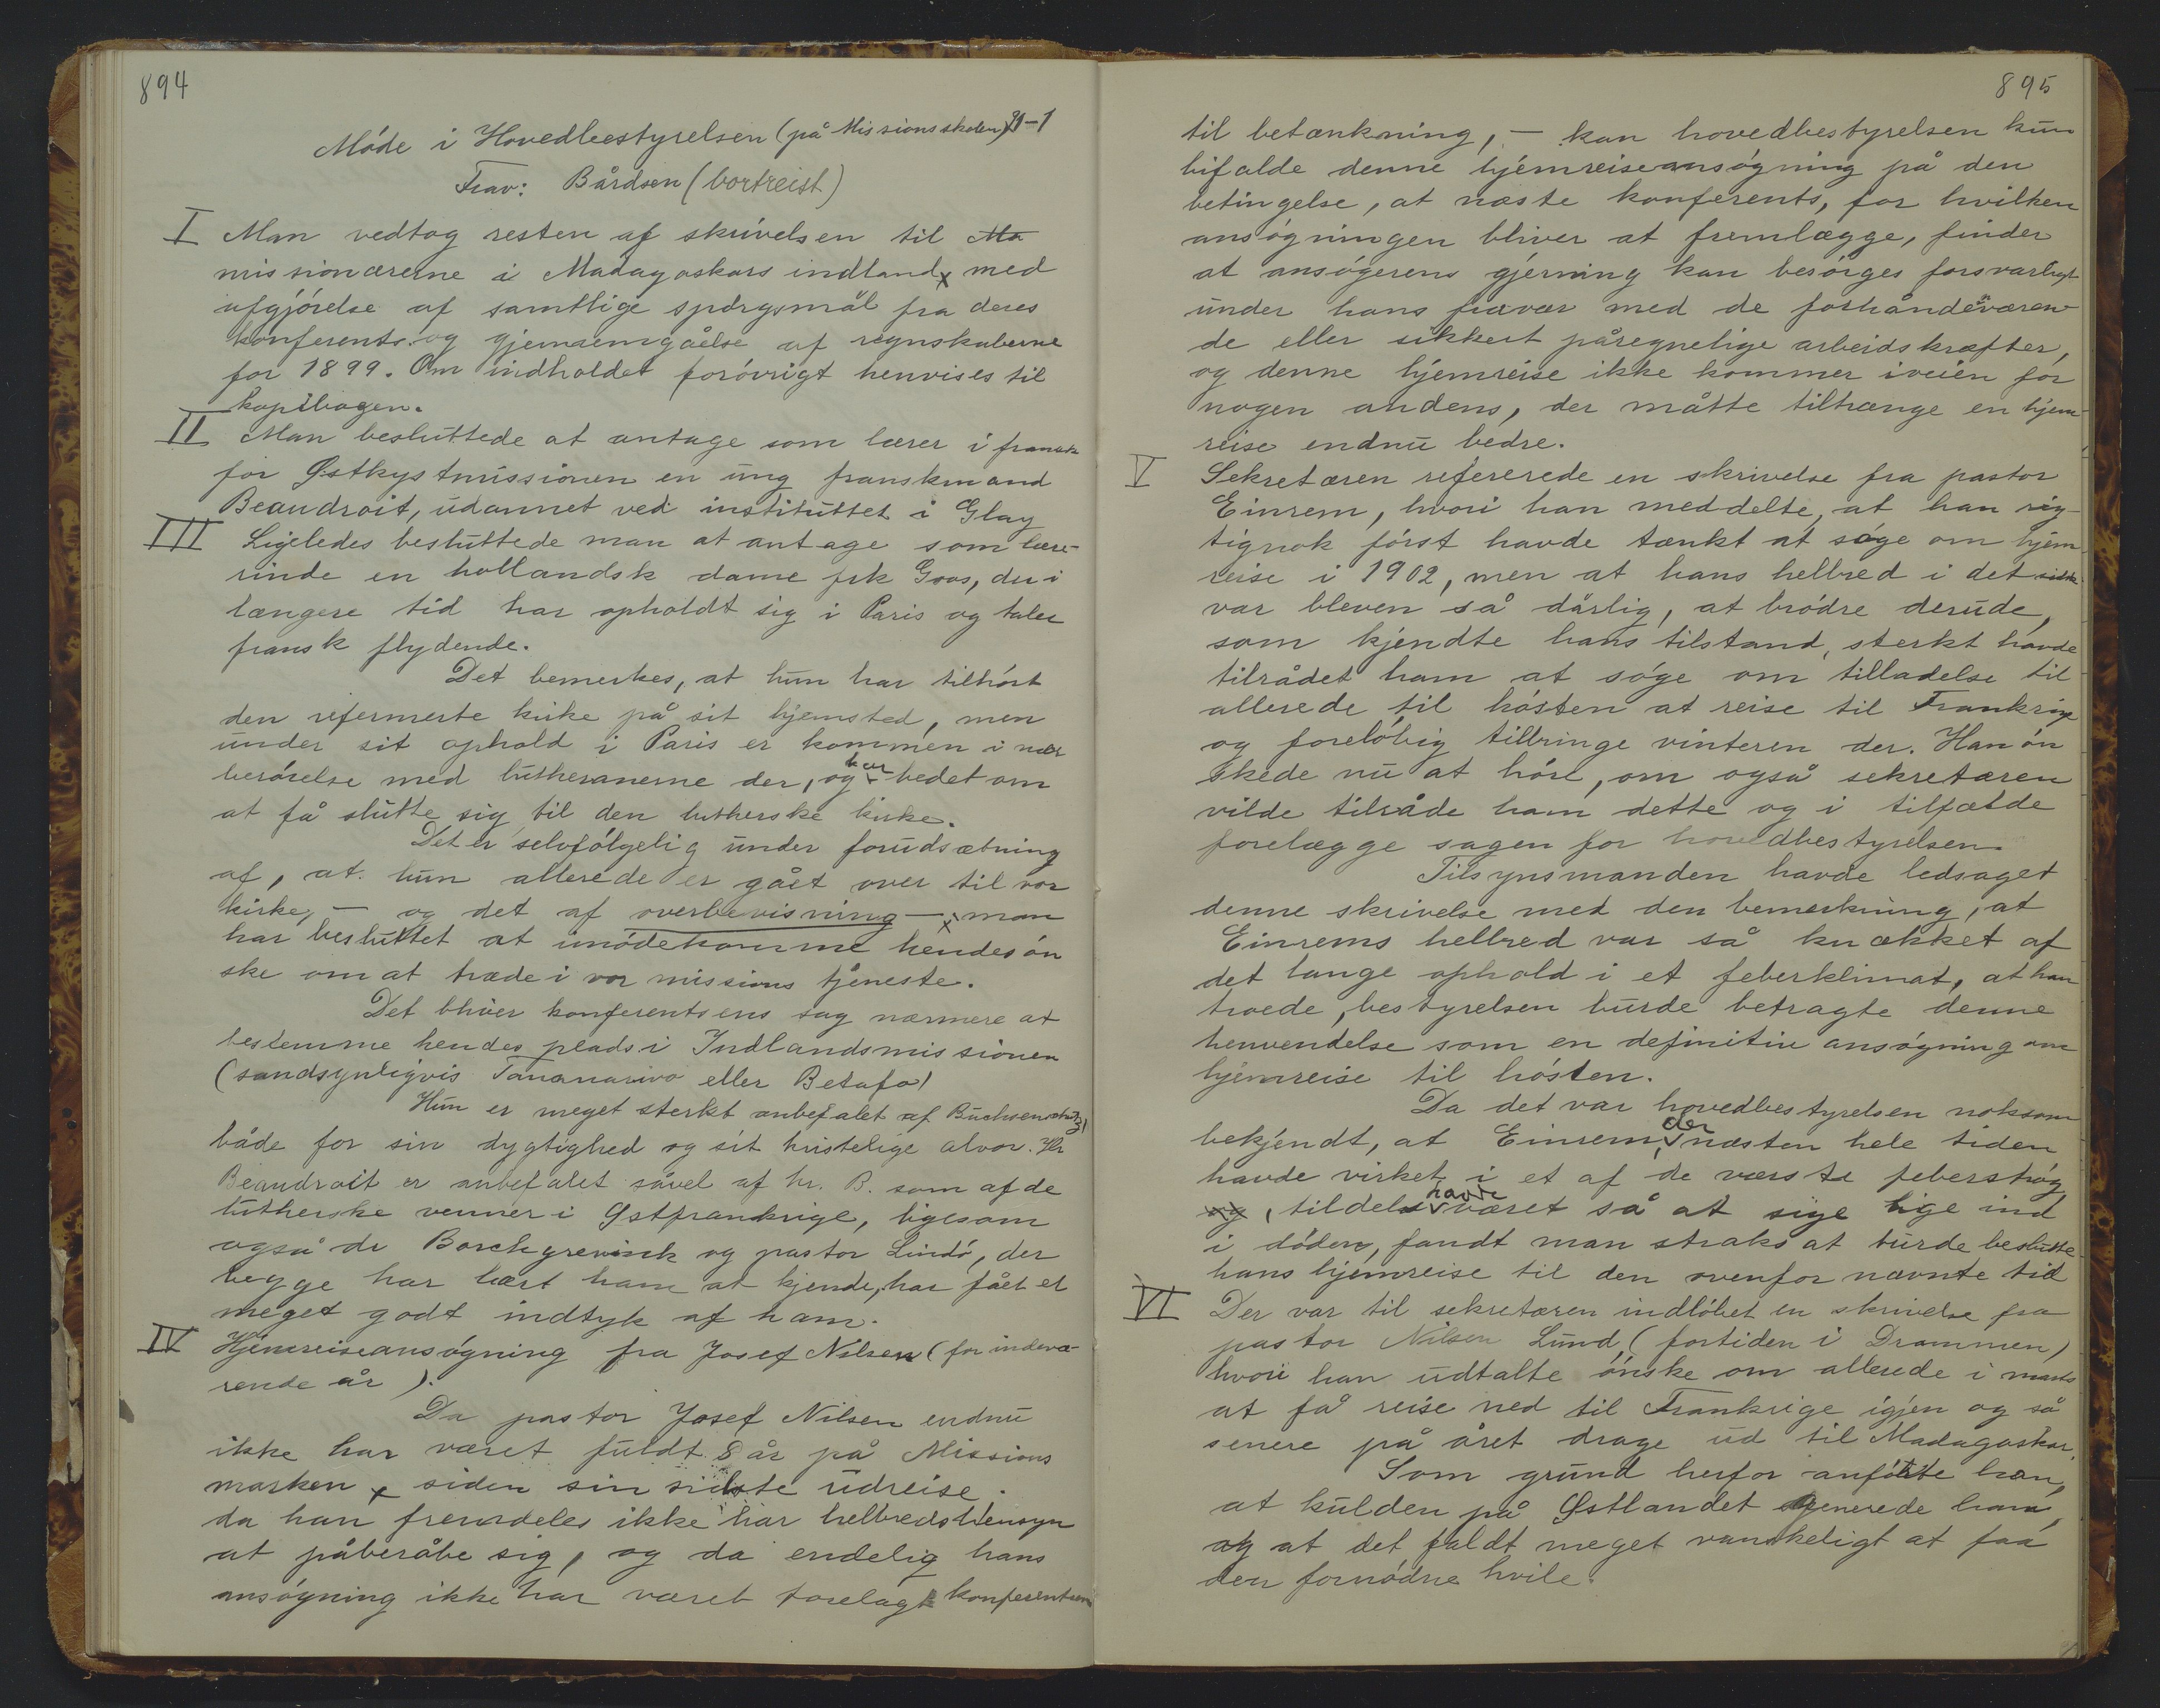 894
Möde i Hovedbestyrelsen (på Missionsskolen) 31-1
Frav: Bårdsen (bortreist)
I Man vedtog resten af skrivelsen til Ma
missionærerne i Madagaskars indland, med
afgjörelse af samtlige spörgsmål fra deres
konferents og gjennemgåelse af regnskaberne
for 1899. Om indholdet forövrigt henvises til
kopibogen.
II Man besluttede at antage som lærer i fransk
for Østkystmissionen en ung franskmand
Beaudroit, udannet ved instituttet i Glay
III Ligeledes besluttede man at antage som lære-
rinde en hollandsk dame frk Goos, der i
længere tid har opholdt sig i Paris og taler
fransk flydende.
Det bemerkes, at hun har tilhört
den refermerte kirke på sit hjemsted, men
under sit ophold i Paris er kommen i nær
berörelse med lutheranerne der, og har bedet om
at få slutte sig til den lutherske kirke.
Det er selvfölgelig under forudsætning
af, at hun allerede er gået over til vor
kirke, — og det af overbevisning — man
har besluttet at imödekomme hendes ön
ske om at træde i vor missions tjeneste.
Det bliver konferentsens sag nærmere at
bestemme hendes plads i Indlandsmissionen
(sandsynligvis Tananarivo eller Betafo)
Hun er meget sterkt anbefalet af Buchsenschutz)
både for sin dygtighed og sit kristelige alvor. Hr
Beaudroit er anbefalet såvel af hr. B. som af de
lutherske venner i Østfrankrige, ligesom
også dr Borchgrevinck og pastor Lindö, der
begge har lært ham at kjende, har fået et
meget godt indtyk af ham.
IV Hjemreiseansögning fra Josef Nilsen (for indevæ-
rende år).
Da pastor Josef Nilsen endnu
ikke har været fuldt 8 år på Missions
marken siden sin sidste udreise.
da han fremdeles ikke har helbredshensyn
at påberåbe sig, og da endelig hans
ansögning ikke har været forelagt konferentsen
895
til betænkning, — kan hovedbestyrelsen kun
bifalde denne hjemreiseansögning på den
betingelse, at næste konferents, for hvilken
ansögningen bliver at fremlægge, finder
at ansögerens gjerning kan besörges forsvarligt
under hans fravær med de forhåndenværen-
de eller sikkert påregnelige arbeidskræfter,
og denne hjemreise ikke kommer iveien for
nogen andens, der måtte tiltrænge en hjem-
reise endnu bedre.
V Sekretæren refererede en skrivelse fra pastor
Einrem, hvori han meddelte, at han rig-
tignok först havde tænkt at söge om hjem
reise i 1902, men at hans helbred i det sidste
var bleven så dårlig, at brödre derude,
som kjendte hans tilstand, sterkt havde
tilrådet ham at söge om tilladelse til
allerede til hösten at reise til Frankrige
og foreløbig tilbringe vinteren der. Han ön
skede nu at höre, om også sekretæren
vilde tilråde ham dette og i tilfælde
forelægge sagen for hovedbestyrelsen.
Tilsynsmanden havde ledsaget
denne skrivelse med den bemerkning, at
Einrems helbred var så knækket af
det lange ophold i et feberklimat, at han
troede, bestyrelsen burde betragte denne
henvendelse som en definitiv ansögning om
hjemreise til hösten.
Da det var hovedbestyrelsen noksom
bekjendt, at Einrem, der næsten hele tiden
havde virket i et af de værste feberströg
og, tildels havde været så at sige lige ind
i döden, fandt man straks at turde beslutte
hans hjemreise til den ovenfor nævnte tid
VI Der var til sekretæren indlöbet en skrivelse fra
pastor Nilsen Lund, (fortiden i Drammen)
hvori han udtalte önske om allerede i marts
at få reise ned til Frankrige igjen og så
senere på året drage ud til Madagaskar.
Som grund herfor anförte han,
at kulden på Østlandet generede ham,
og at det faldt meget vanskeligt at faa
den fornödne hvile.